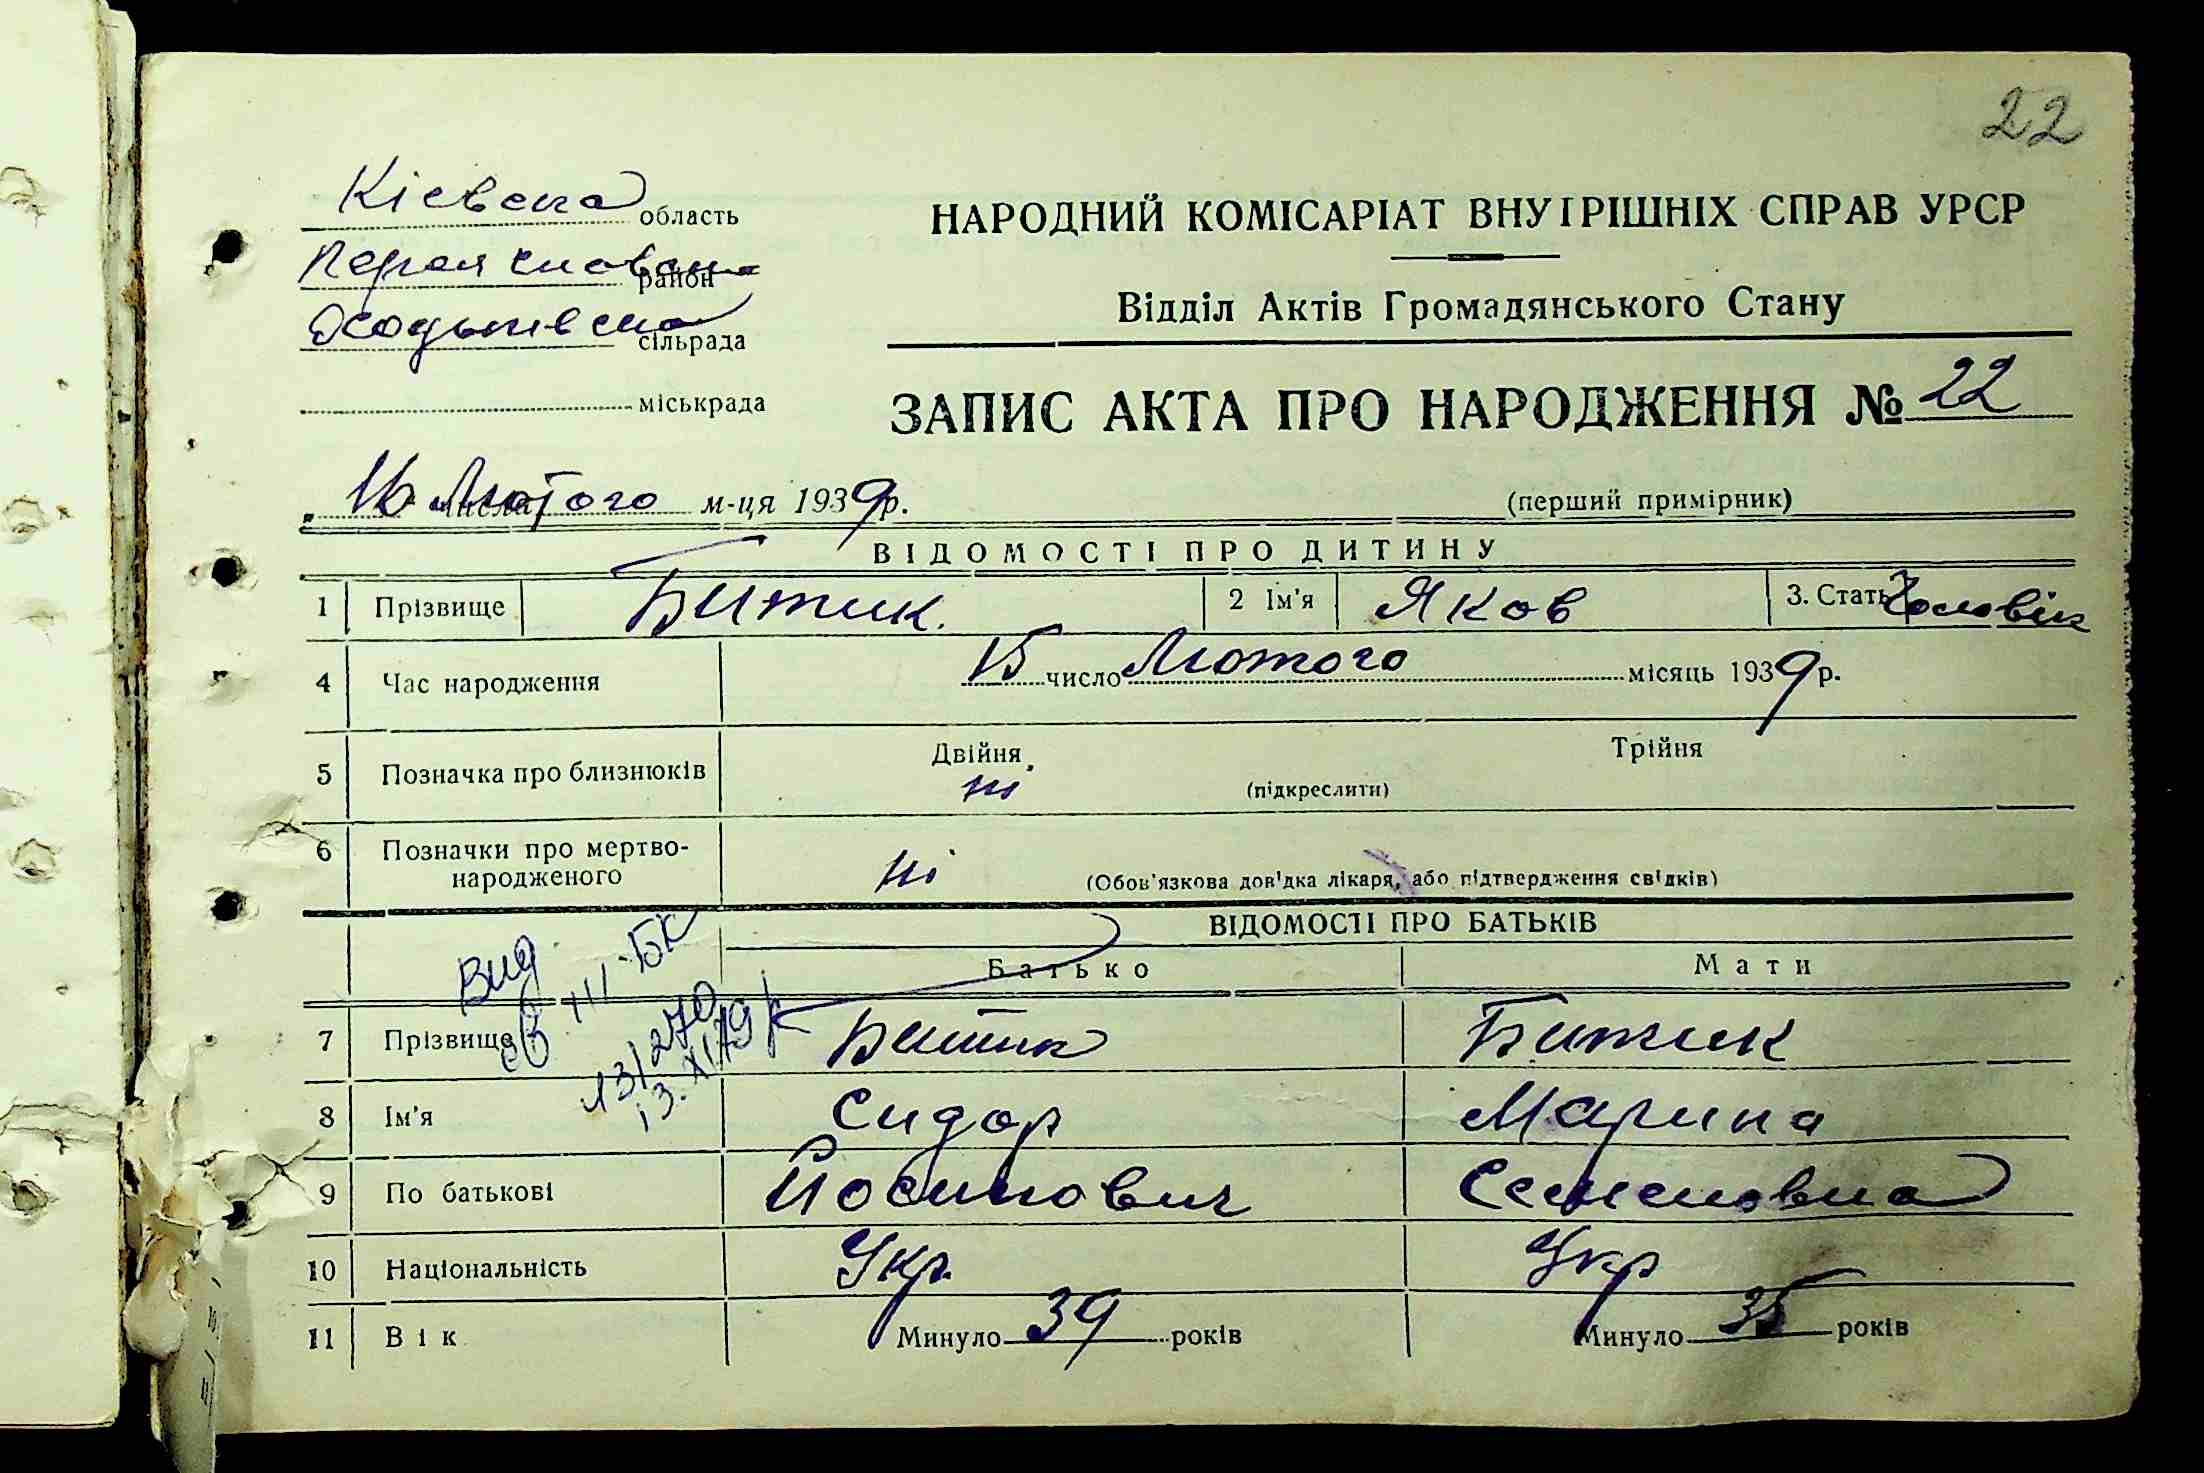 22
Кіевска область
НАРОДНИЙ КОМІСАРІАТ ВНУТРІШНІХ СПРАВ УРСР
район
Відділ Актів Громадянського Стану
сільрада
міськрада
ЗАПИС АКТА ПРО НАРОДЖЕННЯ № 22
16 числа Лютого м-ця 1939 р.
(перший примірник)
ВІДОМОСТІ ПРО ДИТИНУ
1 Прізвище Битик. 2 Ім'я Яков 3. Стать Чоловік
4 Час народження 15 число Лютого місяць 1939 р.
5 Позначка про близнюків Двійня ні (підкреслити) Трійня
6 Позначки про мертво-
народженого ні (Обов'язкова довідка лікаря, або підтвердження свідків)
ВІДОМОСТІ ПРО БАТЬКІВ
Батько Мати
Вид
св III-БК
13.XI.79
7 Прізвище Битик Битик
8 Ім'я Сидор Марина
9 По батькові Йосипович Семеновна
10 Національність Укр. Укр
11 Вік Минуло 39 років Минуло 35 років